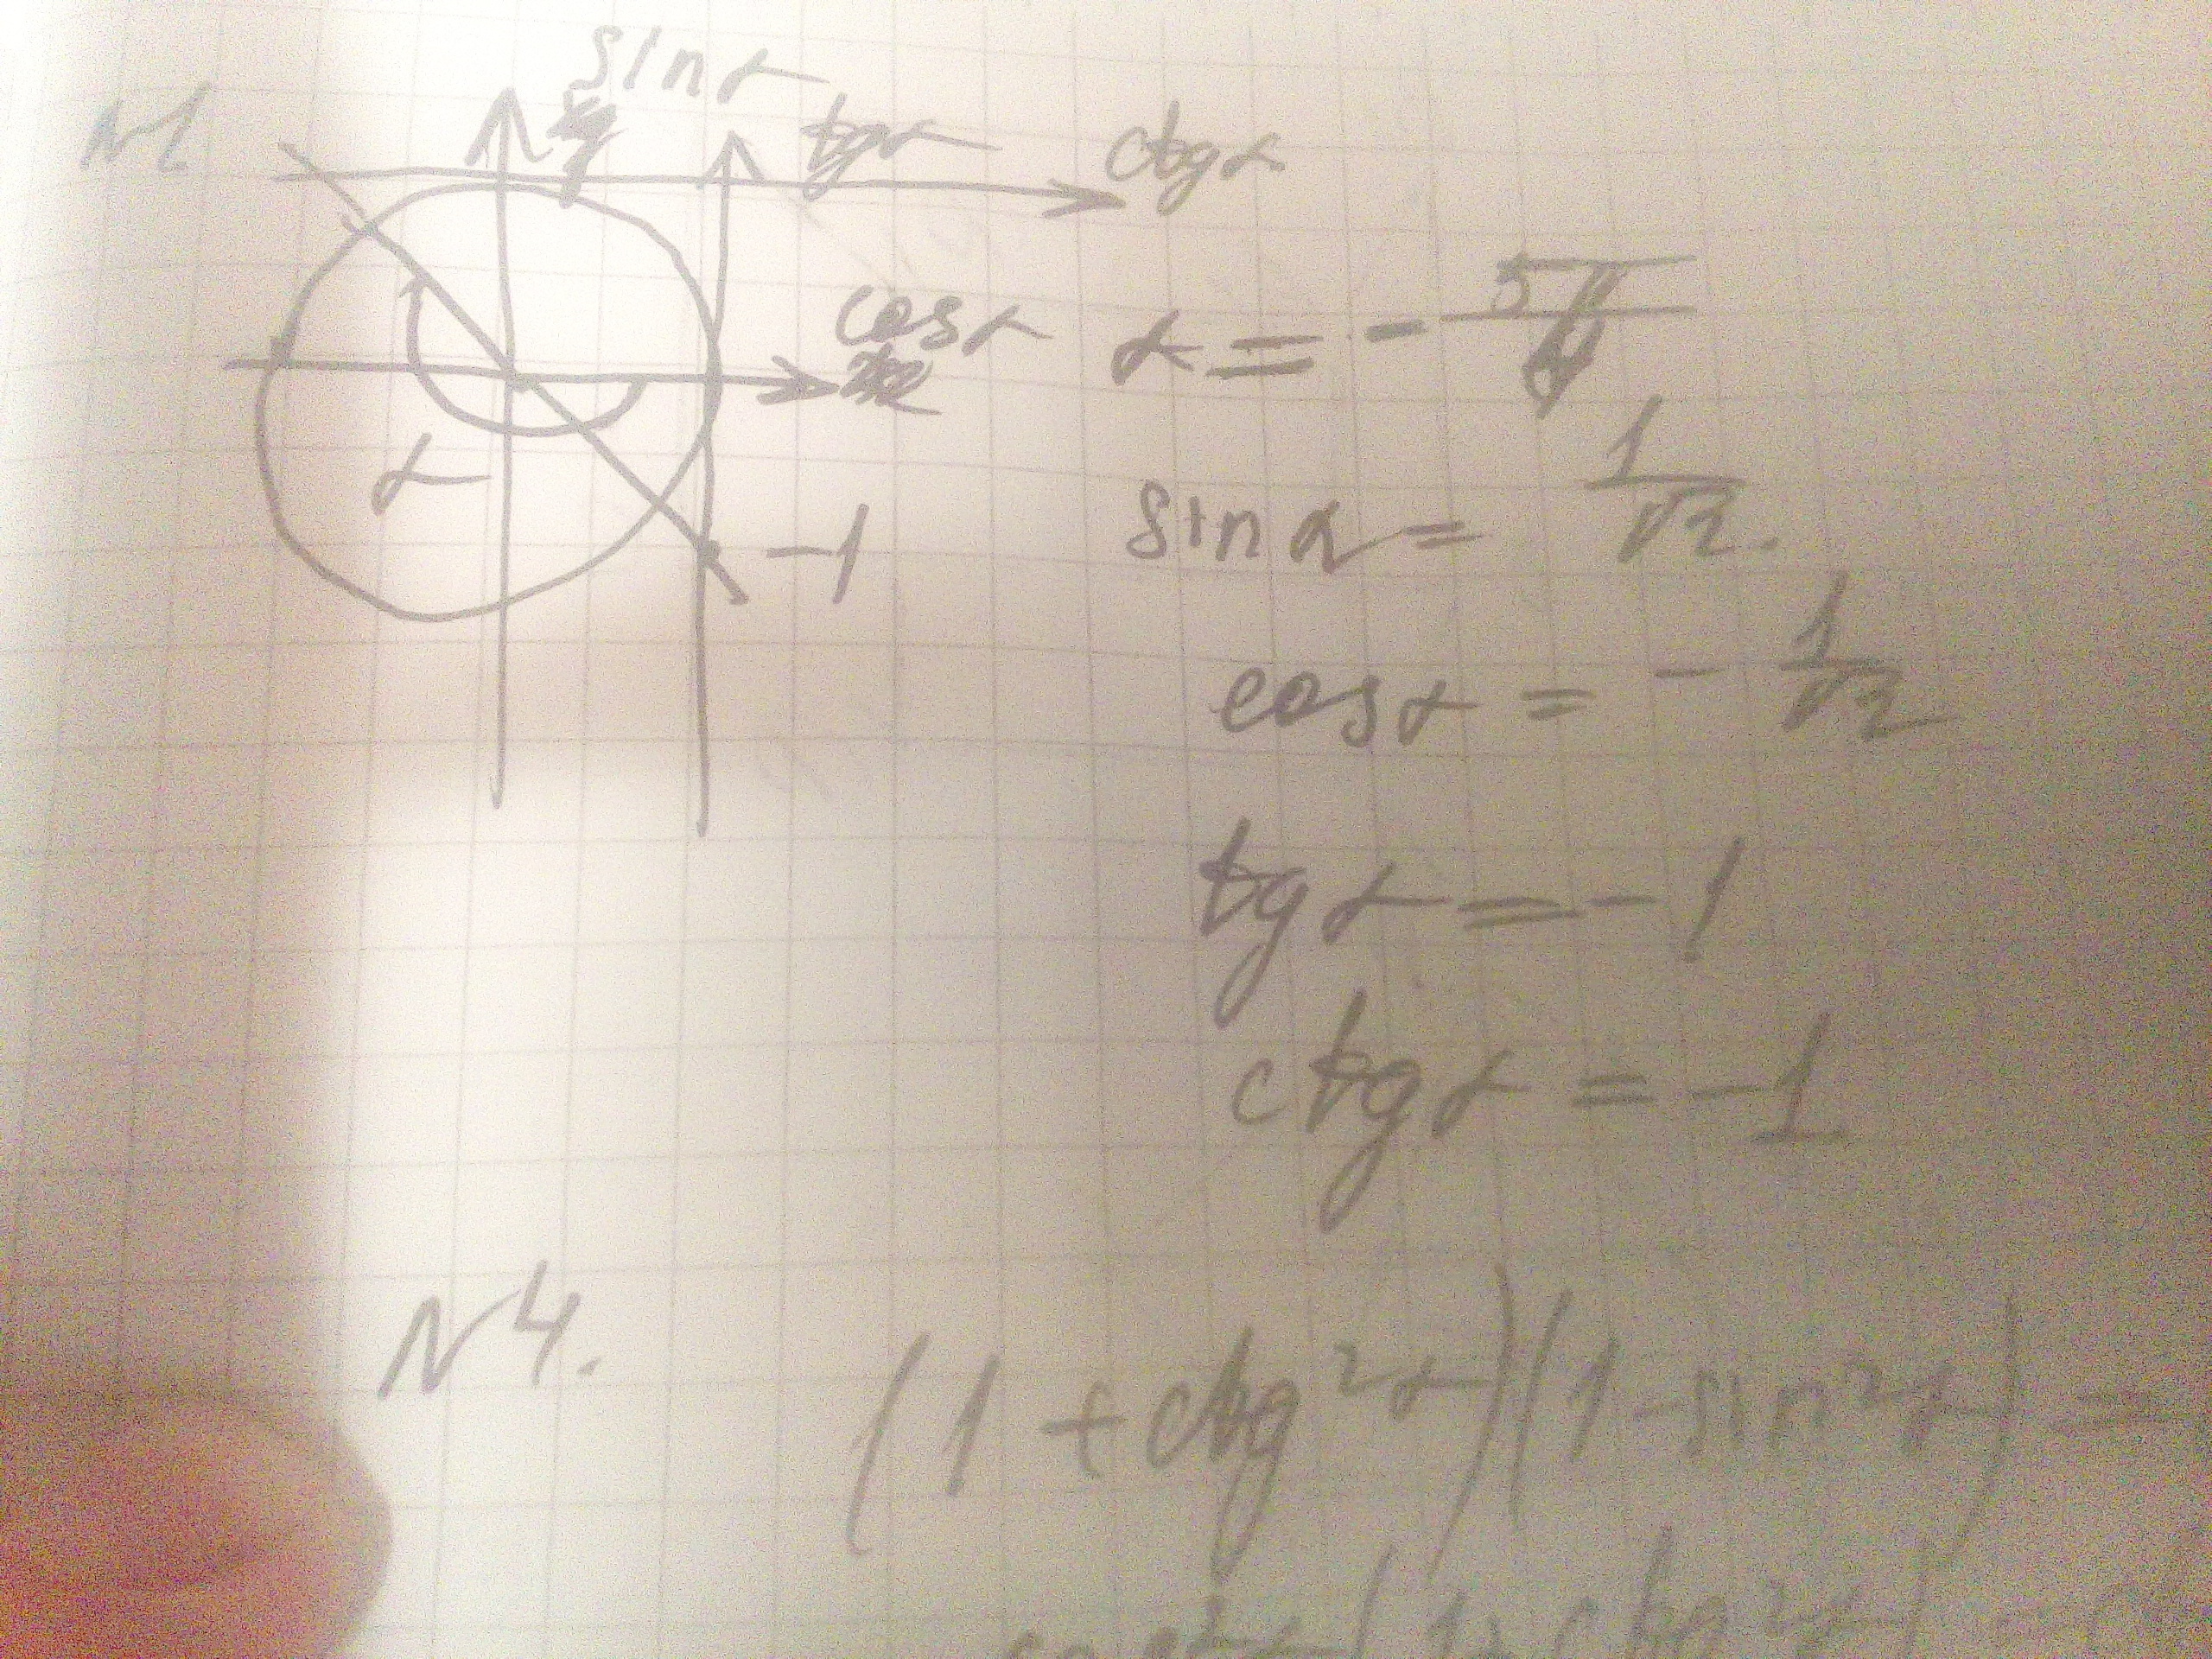 N1
sin α
tg α
ctg α
cos α
α
-1
α = - 5π/4
sin α = 1/√2.
cos α = - 1/√2
tg α = -1
ctg α = -1
N4.
(1 + ctg²α)(1 - sin²α) =